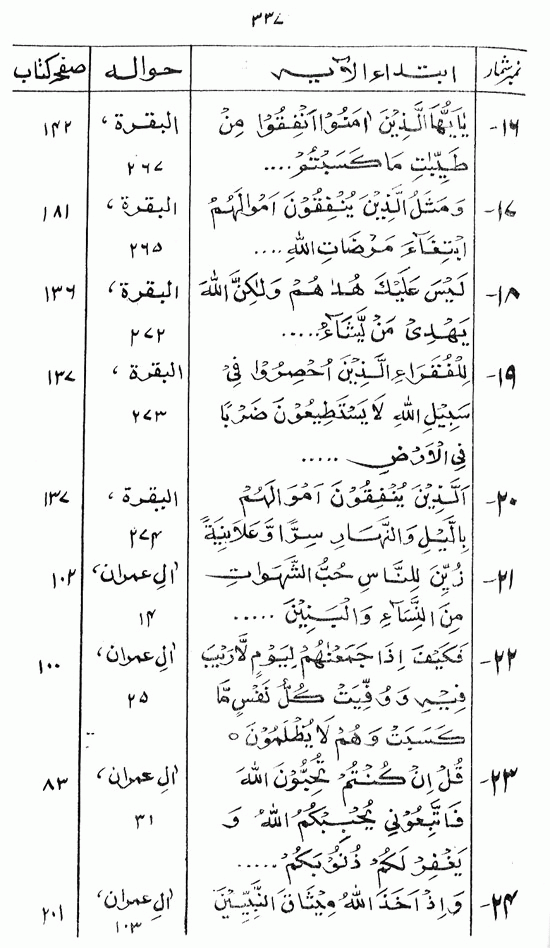 ۳۳۷
نمبر شمار ابتداء الآیہ حوالہ صفحہ کتاب
۱۶- یٰٓاَیُّھَا الَّذِیْنَ اٰمَنُوْا اَنْفِقُوْا مِنْ البقرة، ۱۴۲
طَیِّبٰتِ مَا کَسَبْتُمْ .... ۲۶۷
۱۷- وَمَثَلُ الَّذِیْنَ یُنْفِقُوْنَ اَمْوَالَھُمُ البقرة، ۱۸۱
ابْتِغَآءَ مَرْضَاتِ اللّٰہِ .... ۲۶۵
۱۸- لَیْسَ عَلَیْکَ ھُدٰىھُمْ وَلٰکِنَّ اللّٰہَ البقرة، ۱۳۶
یَھْدِیْ مَنْ یَّشَآءُ ..... ۲۷۲
۱۹- لِلْفُقَرَاءِ الَّذِیْنَ اُحْصِرُوْا فِیْ البقرة، ۱۳۷
سَبِیْلِ اللّٰہِ لَا یَسْتَطِیْعُوْنَ ضَرْبًا ۲۷۳
فِی الْاَرْضِ .....
۲۰- اَلَّذِیْنَ یُنْفِقُوْنَ اَمْوَالَھُمْ البقرة، ۱۳۷
بِالَّیْلِ وَالنَّھَارِ سِرًّا وَّعَلَانِیَةً ۲۷۴
۲۱- زُیِّنَ لِلنَّاسِ حُبُّ الشَّھَوَاتِ اٰل عمران، ۱۰۲
مِنَ النِّسَآءِ وَالْبَنِیْنَ ..... ۱۴
۲۲- فَکَیْفَ اِذَا جَمَعْنٰھُمْ لِیَوْمٍ لَّا رَیْبَ اٰل عمران، ۱۰۰
فِیْہِ وَوُفِّیَتْ کُلُّ نَفْسٍ مَّا ۲۵
کَسَبَتْ وَھُمْ لَا یُظْلَمُوْنَ ○
۲۳- قُلْ اِنْ کُنْتُمْ تُحِبُّوْنَ اللّٰہَ اٰل عمران، ۸۳
فَاتَّبِعُوْنِیْ یُحْبِبْکُمُ اللّٰہُ وَ ۳۱
یَغْفِرْ لَکُمْ ذُنُوْبَکُمْ .....
۲۴- وَاِذْ اَخَذَ اللّٰہُ مِیْثَاقَ النَّبِیّٖنَ اٰل عمران، ۲۰۱
۱۰۳